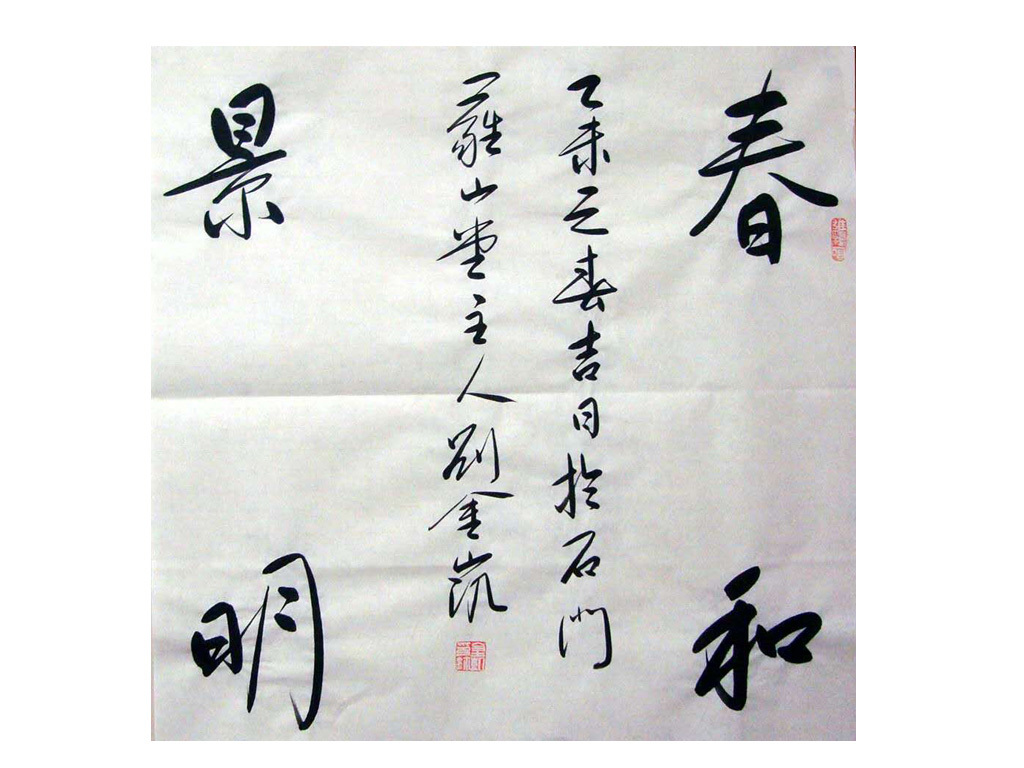 春和
乙未之春吉日於石門
山堂主人劉金
景明